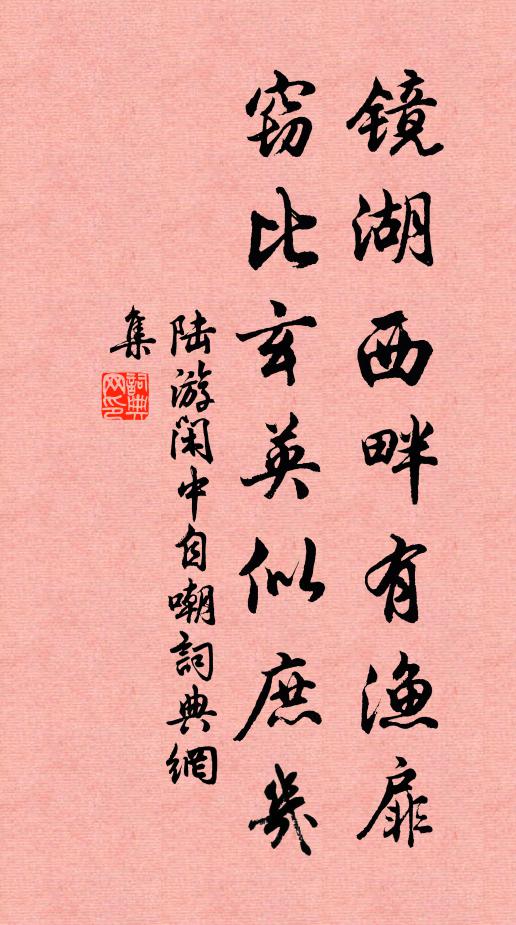 镜湖西畔有渔扉
窃比玄英似庶几
陆游闲中自嘲詞典網
集
詞典网印